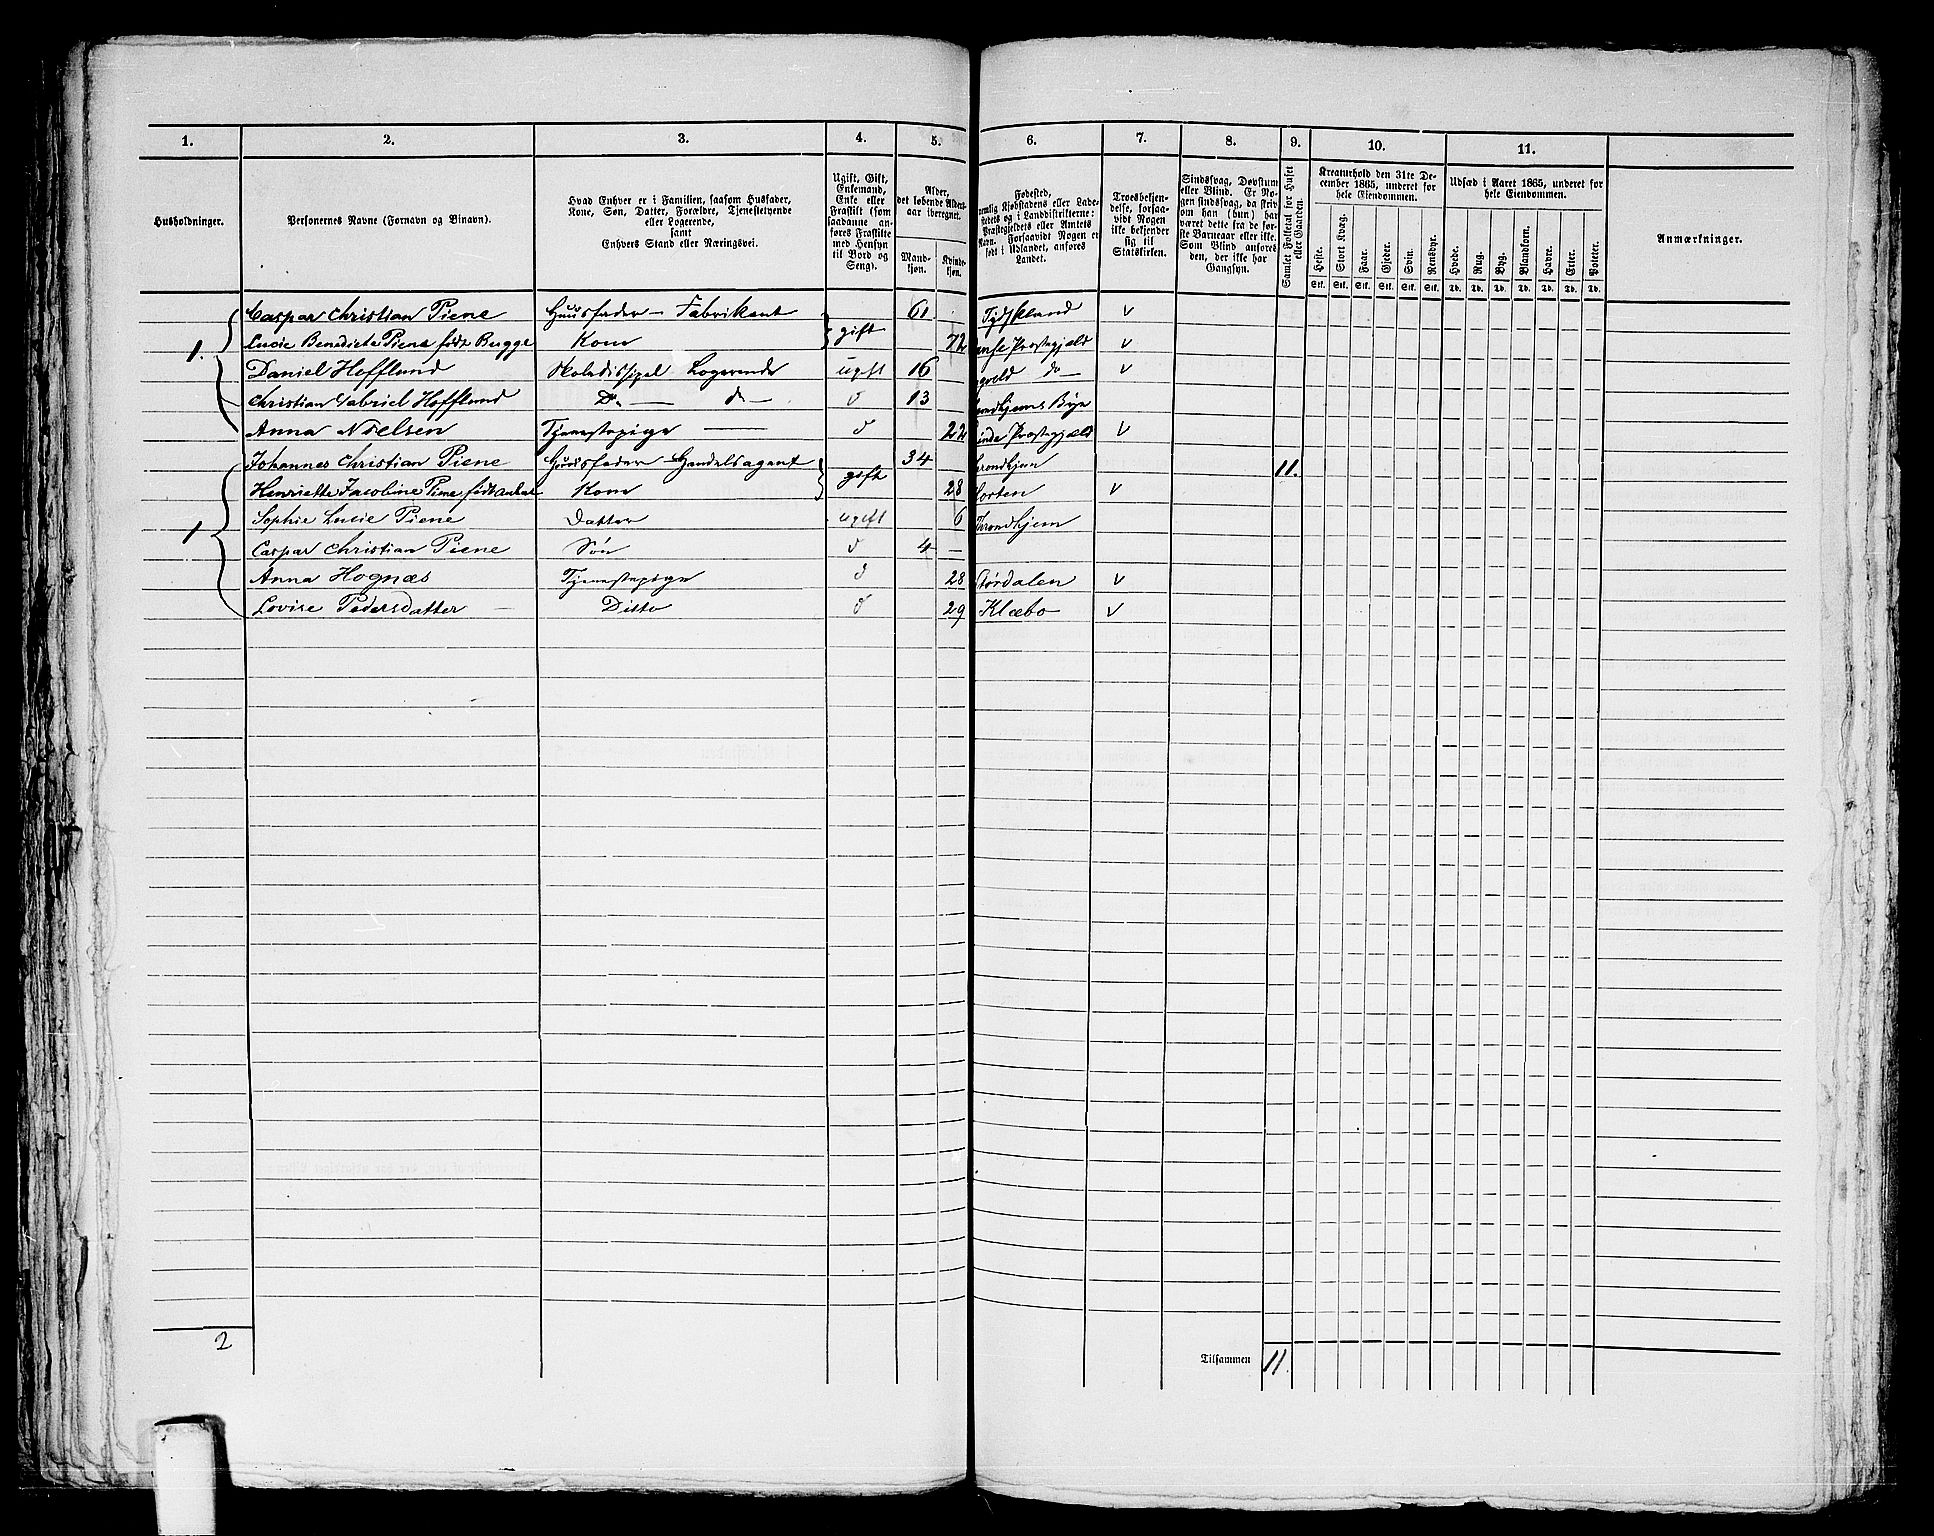 1. 2. 3. 4. 5. 6. 7. 8. 9. 10. 11.
Husholdninger.
Personernes Navne (Fornavn og Binavn).
Hvad Enhver er i Familien, saasom Husfader,
Kone, Søn, Datter, Forældre, Tjenestetyende
eller Logerende,
samt
Enhvers Stand eller Næringsvei.
Ugift, Gift,
Enkemand,
Enke eller
Fraskilt (som
saadanne an-
føres Fraskilte
med Hensyn
til Bord og
Seng).
Alder,
det løbende Alders-
aar iberegnet.
Mand-
kjøn.
Kvinde-
kjøn.
Fødested,
nemlig Kjøbstadens eller Lade-
stedets og i Landdistrikterne:
Præstegjeldets eller Amtets
Navn. Forsaavidt Nogen er
født i Udlandet, anføres
Landet.
Troesbekjen-
delse, forsaa-
vidt Nogen
ikke bekjender
sig til
Statskirken.
Sindssvag, Døvstum
eller Blind. Er No-
gen sindssvag, da skriv
om han (hun) har
været dette fra de før-
ste Barneaar eller ikke.
Som Blind anføres
den, der ikke har
Gangsyn.
Samlet Folketal for Huset
eller Gaarden.
Kreaturhold den 31te De-
cember 1865, underet for
hele Eiendommen.
Heste. Stort Kvæg. Faar. Gjeder. Svin. Rensdyr.
Stk. Stk. Stk. Stk. Stk. Stk.
Udsæd i Aaret 1865, underet for
hele Eiendommen.
Hvede. Rug. Byg. Blandkorn. Havre. Erter. Poteter.
Td. Td. Td. Td. Td. Td. Td.
Anmærkninger.
Caspar Christian Piene Huusfader – Fabrikant 61 Tydskland v
1. Lucie Benedicte Piene født Bugge Kone gift 72 Præstegjæld v
Daniel Hofflund Skoledissipel Logerende ugift 16 do – v
Christian Gabriel Hofflund Do – do – d 13 Trondhjems Bye
Anna Nielsen Tjenestepige – d 22 Præstegjæld v
Johannes Christian Piene Huusfader – Handelsagent 34 Trondhjem 11.
Henriette Jacobine Piene født Kone gift 28 Horten v
1 Sophie Lucie Piene Datter ugift 6 Trondhjem
Caspar Christian Piene Søn d 4 –
Anna Hognæs Tjenestepige d 28 Størdalen v
Lovise Pedersdatter – Ditto d 29 Klæbo v
2
Tilsammen 11.